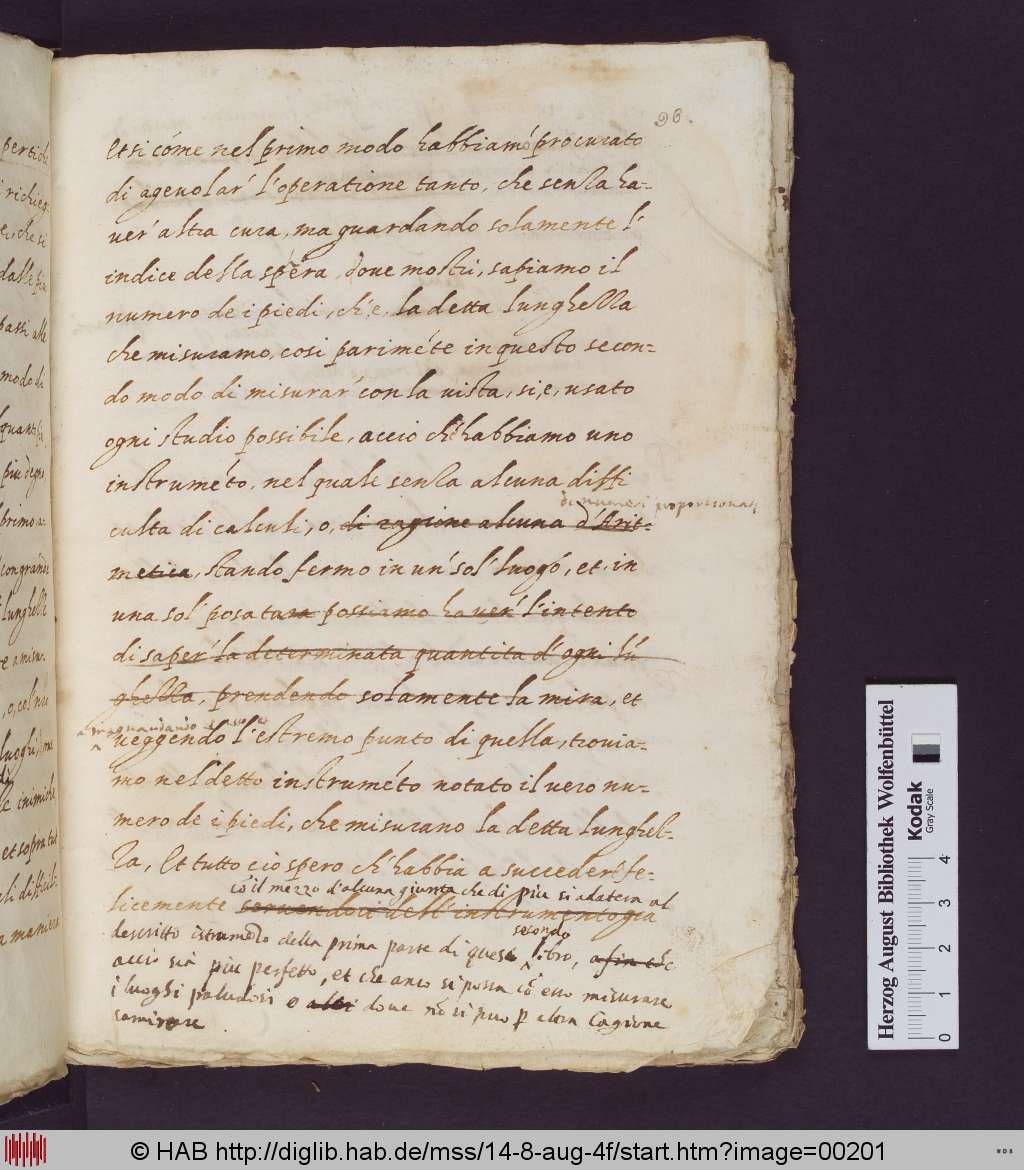 96.
Et si cóme nel primo modo habbiamo procurato
di ageuolar' l'operatione tanto, che senza ha-
uer' altra cura, ma guardando solamente l'
indice della spéra, doue mostri, sapiamo il
numero de i piedi, ch'e, la detta lunghezza
che misuramo, cosi pariméte in questo secon-
do modo di misurar' con la uista, si, e, usato
ogni studio possibile, accio ch'habbiamo uno
instruméto, nel quale senza alcuna diffi
di numeri proportionati
culta di calculi, o, di ragione alcuna d'Arit-
metica, stando fermo in un' sol' luogo, et, in
una sol' posatura possiamo hauer' l'intento
di saper' la determinata quantita d'ogni lú
ghezza, prendendo solamente la mira, et
traguardando
ueggendo l'estremo punto di quella, trouia-
mo nel detto instruméto notato il uero nu-
mero de i piedi, che misurano la detta lunghez-
za, Et tutto cio spero ch'habbia a succeder' fe-
có il mezzo d'alcuna giunta che di piu si adatera al
licemente seruendoci dell'instrumento gia
secondo
descritto istrumento della prima parte di questo libro, afin che
accio sia piu perfetto, et che anco si possa có esso misurare
i luoghi paludosi o altri doue nó si puo p altra cagione
caminare
pertiche
richieg-
e, che si
dalle
passi alle
modo di
quanto
piu
primo
congrande
lunghezze
luoghi
inimiche
et sopra tut
difficil-
maniera
Herzog August Bibliothek Wolfenbüttel
Kodak
Gray Scale
0 1 2 3 4
© HAB http://diglib.hab.de/mss/14-8-aug-4f/start.htm?image=00201